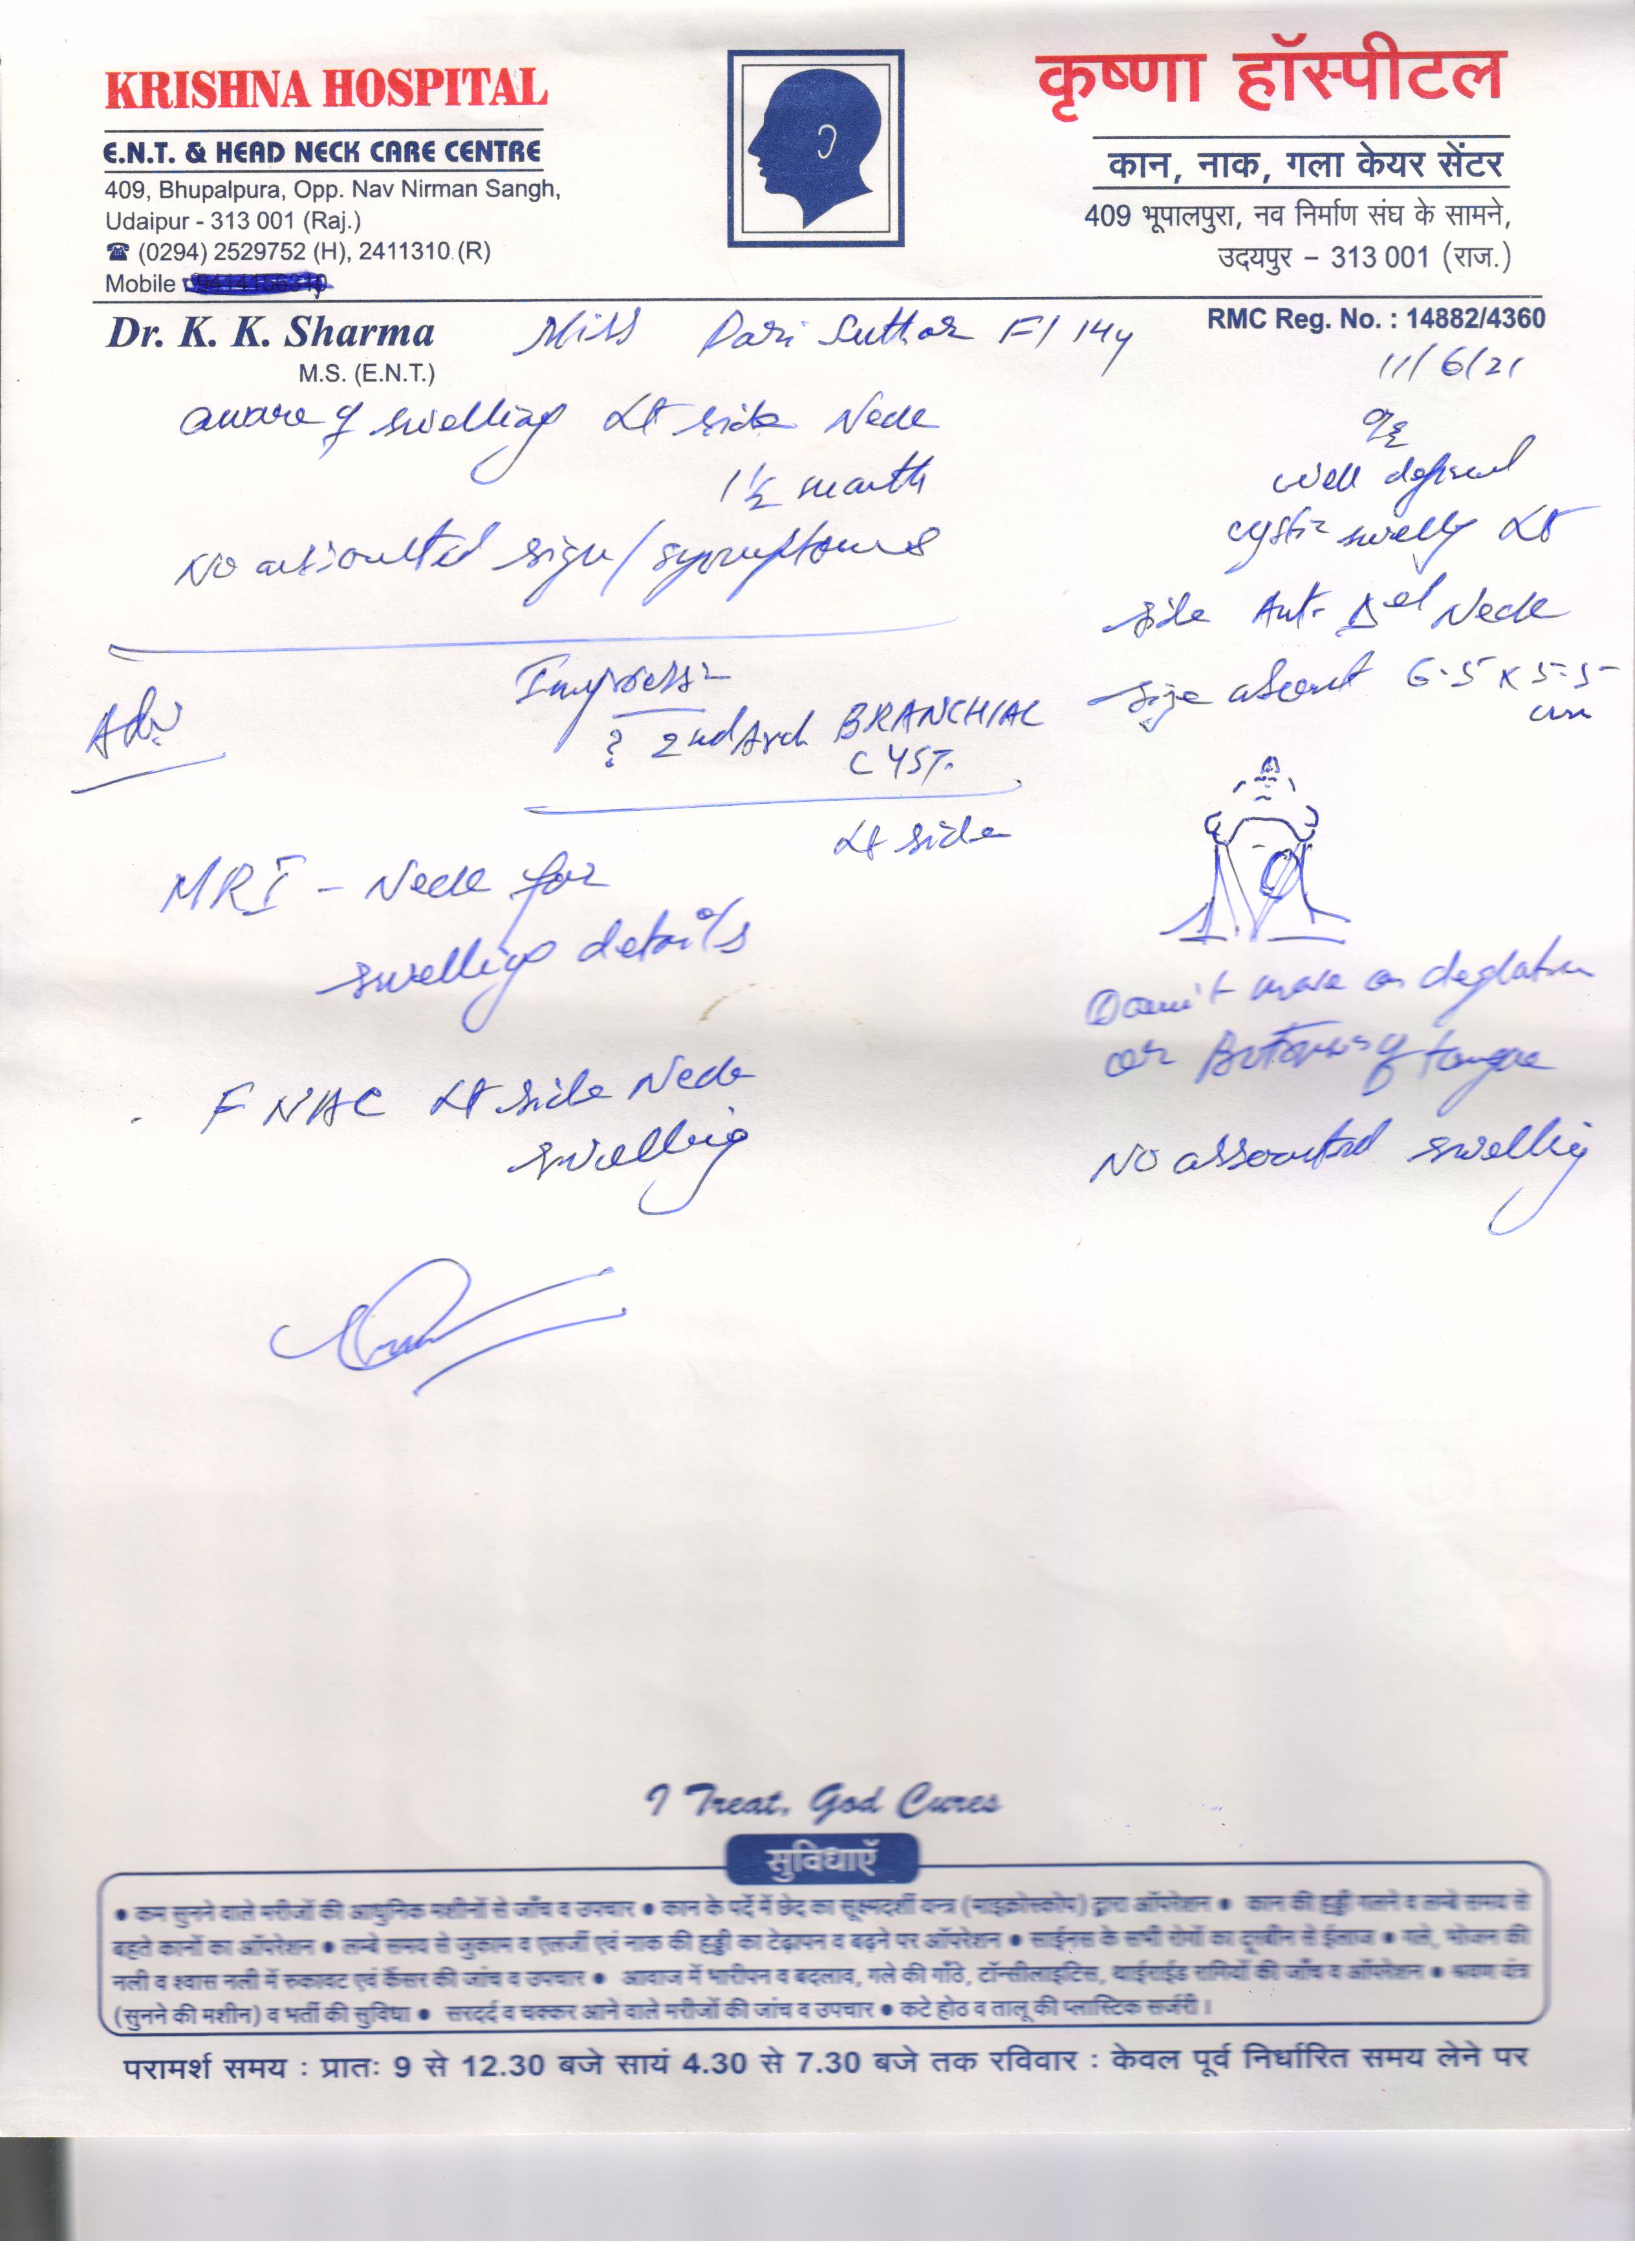 KRISHNA HOSPITAL
E.N.T. & HEAD NECK CARE CENTRE
409, Bhupalpura, Opp. Nav Nirman Sangh,
Udaipur - 313 001 (Raj.)
☎ (0294) 2529752 (H), 2411310 (R)
Mobile :
कृष्णा हॉस्पीटल
कान, नाक, गला केयर सेंटर
409 भूपालपुरा, नव निर्माण संघ के सामने,
उदयपुर – 313 001 (राज.)
Dr. K. K. Sharma
M.S. (E.N.T.)
Miss Pari Suthar F/ 14y
RMC Reg. No. : 14882/4360
11/6/21
aware of swelling Lt side Neck
1½ month
No associated sign/symptoms
O/E
well defined
cystic swelling Lt
side Ant. Δel Neck
size about 6.5 x 5.5
cm
Adv
Impressn
? 2nd Arch BRANCHIAL
CYST.
Lt side
MRI - Neck for
swelling details
FNAC Lt side Neck
swelling
move on
or of tongue
No associated swelling
I Treat, God Cures
सुविधाएँ
• कम सुनने वाले मरीजों की आधुनिक मशीनों से जाँच व उपचार • कान के पर्दे में छेद का सूक्ष्मदर्शी यन्त्र (माइक्रोस्कोप) द्वारा ऑपरेशन • कान की हड्डी गलने व लम्बे समय से
बहते कानों का ऑपरेशन • लम्बे समय से जुकाम व एलर्जी एवं नाक की हड्डी का टेढ़ापन व बढ़ने पर ऑपरेशन • साईनस के सभी रोगों का दूरबीन से ईलाज • गले, भोजन की
नली व श्वास नली में रुकावट एवं कैंसर की जांच व उपचार • आवाज में भारीपन व बदलाव, गले की गाँठे, टॉन्सीलाइटिस, थाईराईड की जाँच व ऑपरेशन • श्रवण यंत्र
(सुनने की मशीन) व भर्ती की सुविधा • सरदर्द व चक्कर आने वाले मरीजों की जांच व उपचार • कटे होठ व तालू की प्लास्टिक सर्जरी।
परामर्श समय : प्रातः 9 से 12.30 बजे सायं 4.30 से 7.30 बजे तक रविवार : केवल पूर्व निर्धारित समय लेने पर